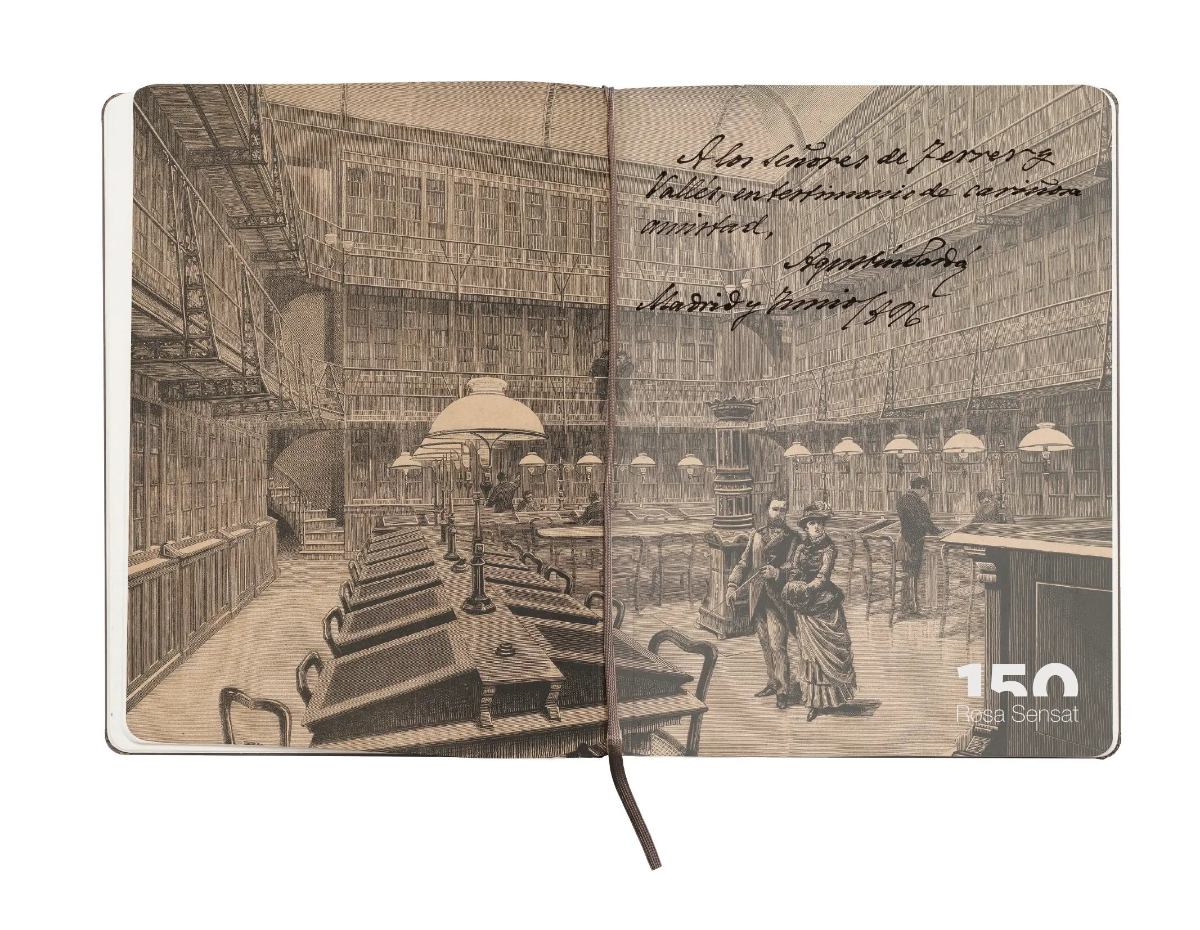 A los Señores de Ferrer y
Vallés, en testimonio de cariñosa
amistad,
Agustín Sardá
Madrid y Junio /896
150
Rosa Sensat